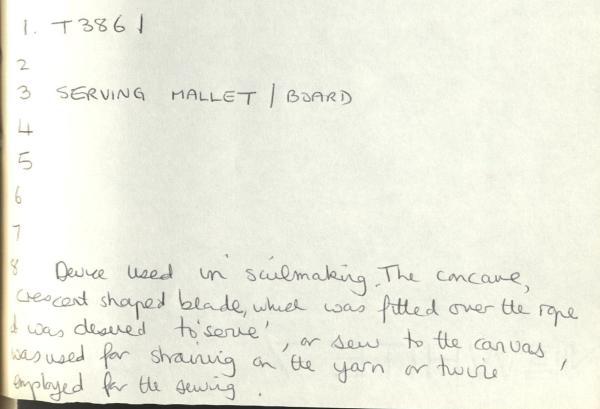 1. T3861
2
3 SERVING MALLET / BOARD
4
5
6
7
8 Device used in sailmaking. The concave,
crescent shaped blade, which was fitted over the rope
it was desired to 'serve', or sew to the canvas,
was used for straining on the yarn or twine
employed for the sewing.